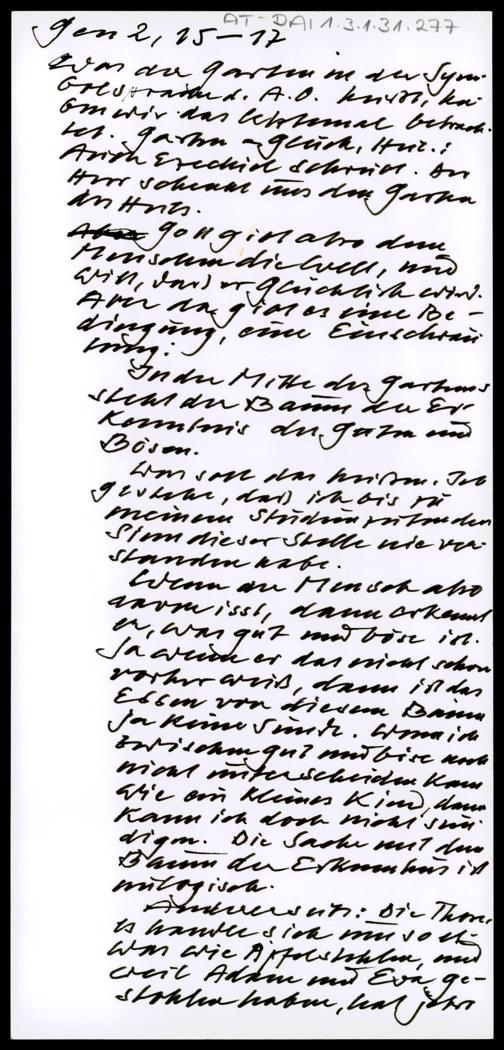 AT-DAI 1.3.1.31.277
Gen 2, 15-17
Was der Garten in der Sym-
bolsprache d. A.O. heißt, ha-
ben wir das letztemal betrach-
tet. Garten = Glück, Heil:
Auch Ezechiel schreibt. Der
Herr schenkt uns den Garten
des Heils.
Gott gibt also dem
Menschen die Welt, und
will, daß er glücklich wird.
Aber da gibt es eine Be-
dingung, eine Einschrän
kung:
In der Mitte des Gartens
steht der Baum der Er-
kenntnis des Guten und
Bösen.
Was soll das heißen. Ich
gestehe, daß ich bis zu
meinem Studium den
Sinn dieser Stelle nie ver-
standen habe.
Wenn der Mensch also
davon isst, dann erkennt
er, was gut und böse ist.
Ja wenn er das nicht schon
vorher weiß, dann ist das
Essen von diesem Baum
ja keine Sünde. Wenn ich
zwischen gut und böse noch
nicht unterscheiden kann
wie ein kleines Kind, dann
kann ich doch nicht sün
digen. Die Sache mit dem
Baum der Erkenntnis ist
unlogisch.
Andererseits: Die These
es handle sich um so et-
was wie Äpfelstehlen, und
weil Adam und Eva ge-
stohlen haben, hat jetzt